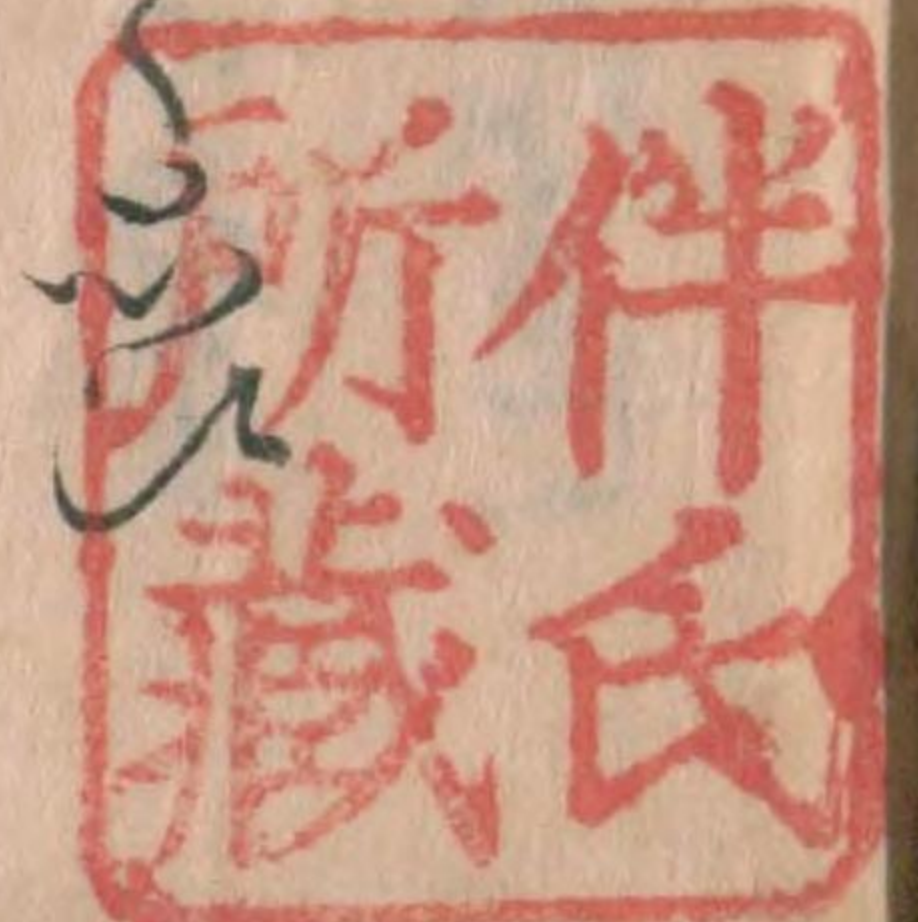 伴氏
所藏